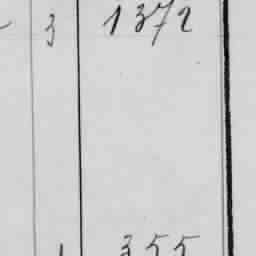 3 1372
1 355